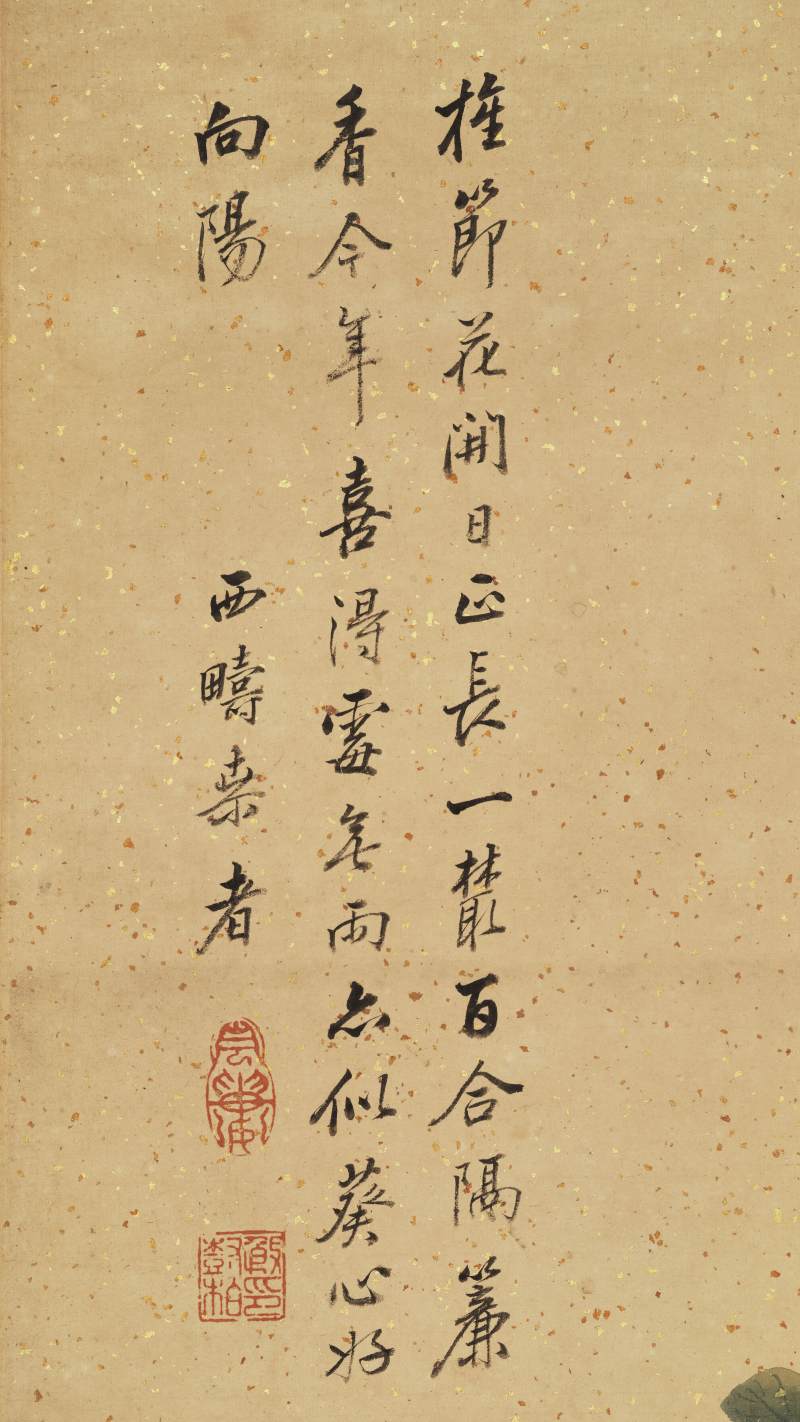 節花開日正長一叢百合隔簾
香今年喜得霉無雨亦似葵心好
向陽
西疇桒者
殷印樹柏